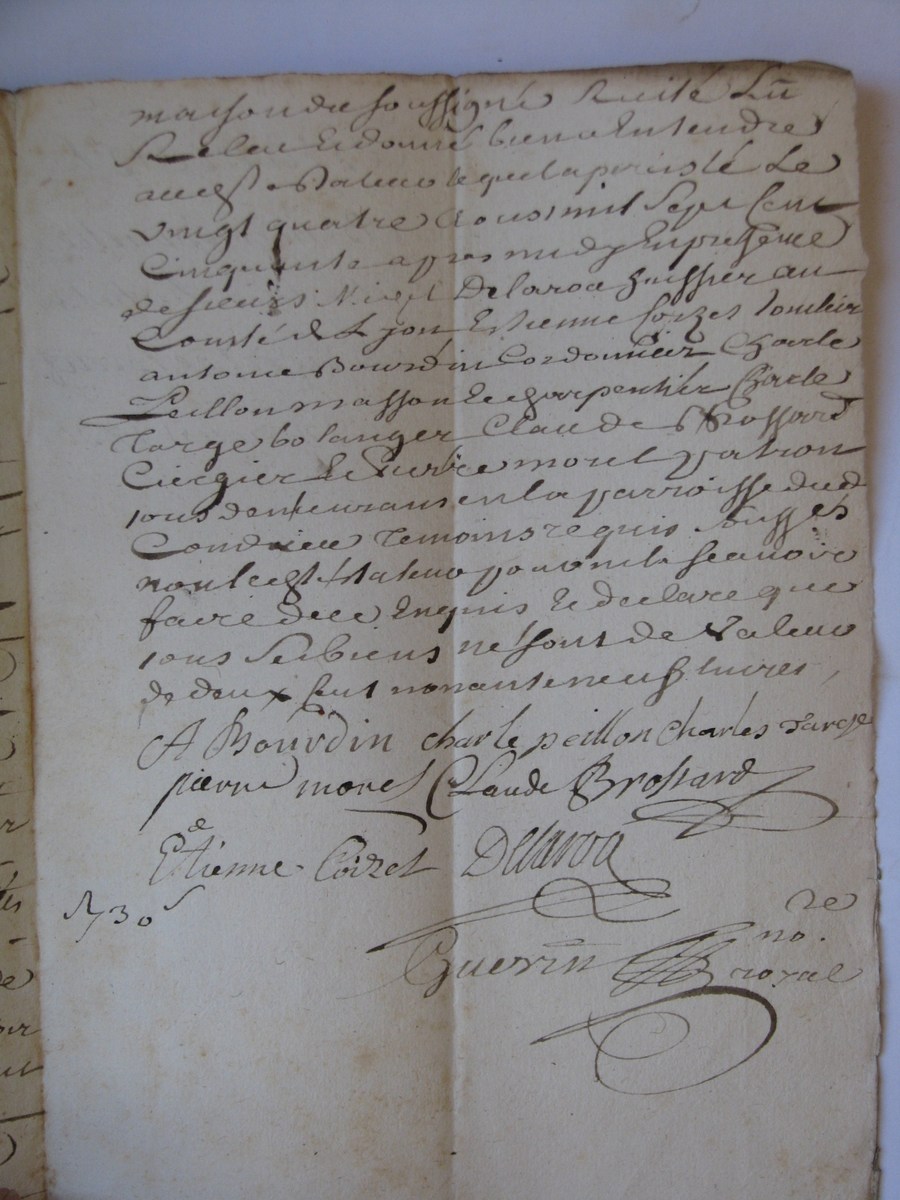 maison du soussigné Recité Lû
Relu Et donné bien a Entendre
audit testateur lequel a persisté Le
vingt quatre Aoust mil Sept Cent
Cinquante apres midy En presence
de sieurs Delaroa huissier au
Comté de Lyon Estienne Coizet
antoine Bourdin Cordonnier Charle
Peillon masson Et charpentier Charle
Targe bolanger Claude Brossard
Ciergier Et pierre morel patron
tous demeurans en la parroisse dud
Condrieu Temoins requis Soussignés
non led testateur pour ne le scavoir
faire de ce Enquis Et declare que
tous ses biens ne sont de valeur
de deux Cent nonante neuf livres,
A Bourdin charle peillon Charles Targe
pierre morel Claude Brossard
Etienne Coizet Delaroa
730
re
no.
Guerin royal